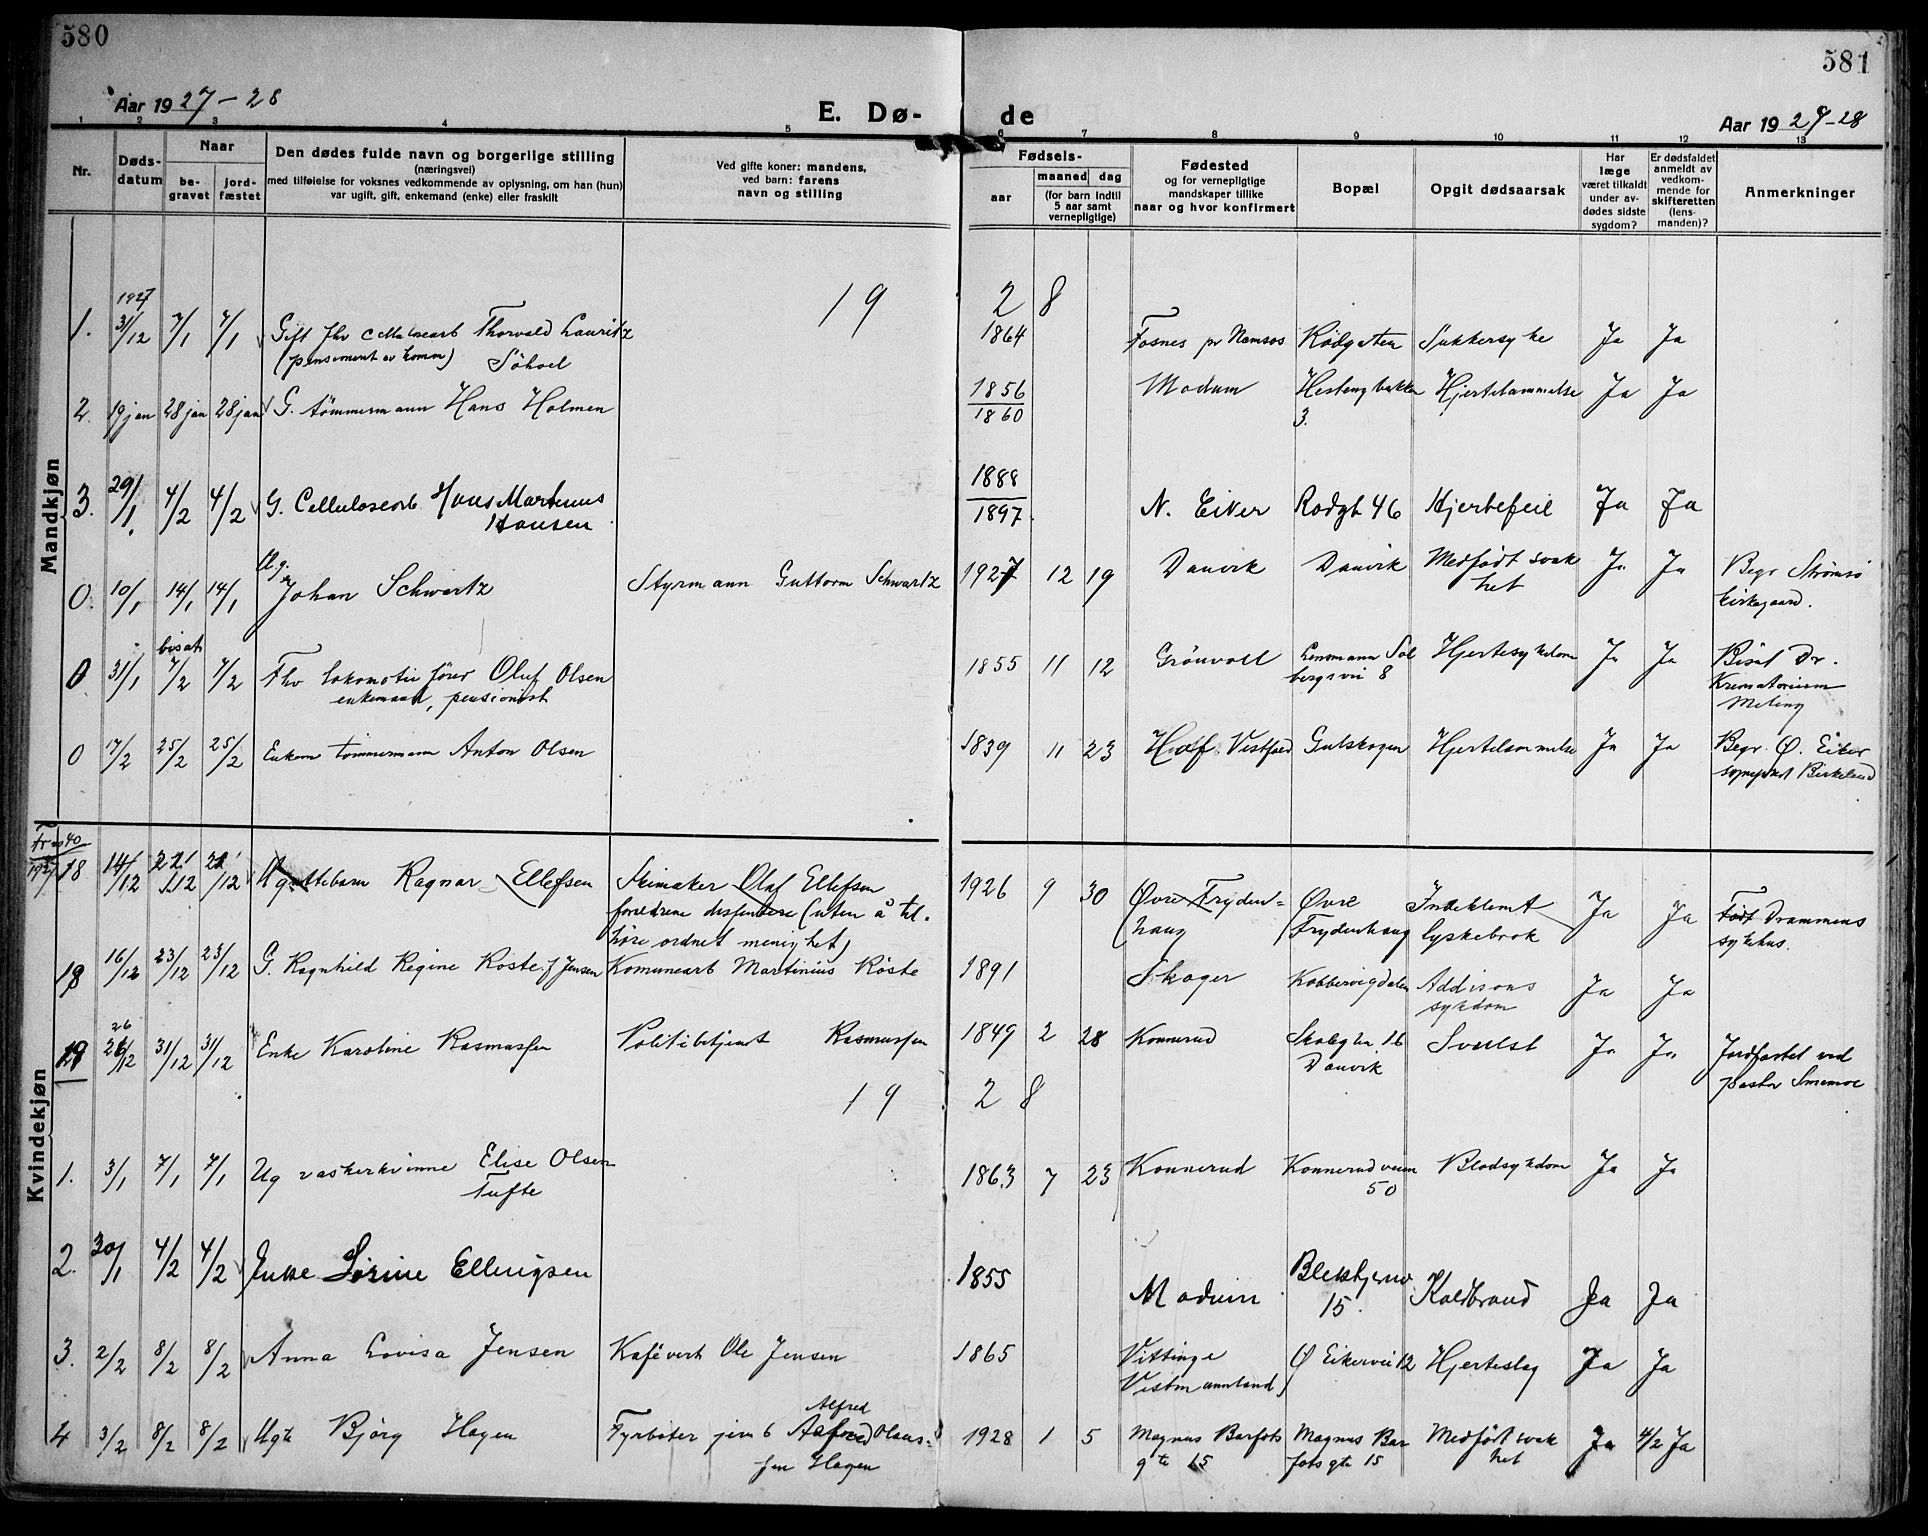 580
581
Aar 1927-28
E. Dø-
de
Aar 1927-28
1 2 3 4 5 6 7 8 9 10 11 12 13
Nr.
Døds-
datum
Naar
be-
gravet
jord-
fæstet
Den dødes fulde navn og borgerlige stilling
(næringsvei)
med tilføielse for voksnes vedkommende av oplysning, om han (hun)
var ugift, gift, enkemand (enke) eller fraskilt
Ved gifte koner: mandens,
ved barn: farens
navn og stilling
Fødsels-
aar
maaned dag
(for barn indtil
5 aar samt
vernepligtige)
Fødested
og for vernepligtige
mandskaper tillike
naar og hvor konfirmert
Bopæl
Opgit dødsaarsak
Har
læge
været tilkaldt
under av-
dødes sidste
sygdom?
Er dødsfaldet
anmeldt av
vedkom-
mende for
skifteretten
(lens-
manden)?
Anmerkninger
Mandkjøn
19 28
1. 1927 31/12 7/1 7/1 Gift fhv cellulosearb Thorvald Lauritz 1864 Fosnes pr Namsos Rødgaten Sukkersyke Ja Ja
(pensionert av komm) Söhoel
2. 19 jan 28 jan 28 jan G. tømmermann Hans Holmen 1856 Modum Hestengbakken Hjertelammelse Ja Ja
1860 3.
3. 29/1 4/2 4/2 G. Cellulosearb Hans Martinius 1888 N. Eiker Rødgt 46 Hjertefeil Ja Ja
Hansen 1897
0. 10/1 14/1 14/1 Ug. Johan Schwartz Styrmann Guttorm Schwartz 1927 12 19 Danvik Danvik Medfødt svak Ja Ja Begr Strømsø
het kirkegaard.
bisat
0 31/1 7/2 7/2 Fhv lokomotivfører Oluf Olsen 1855 11 12 Grönvoll Lensmann Sol Hjertesykdom Ja Ja Bisat Dr.
enkemand, pensionist bergsvei 8 Krematorium
0 17/2 25/2 25/2 Enkem tømmermann Anton Olsen 1839 11 23 Hof Vestfold Gulskogen Hjertelammelse Ja Ja Begr. Ø. Eiker
Kvindekjøn
40
1927 18 14/12 22/12 22/12 Ugattebarn Ragnar Ellefsen Skimaker Olaf Ellefsen 1926 9 30 Øvre Fryden= Øvre Indeklemt Ja Ja Født Drammens
foreldrene dissentere (uten å til- haug Frydenhaug lyskebrok sykhus.
høre ordnet menighet)
19 16/12 23/12 23/12 G. Ragnhild Regine Røste f Jensen Komunearb Martinius Røste 1891 Skoger Kobbervigdalen Addisons Ja Ja
sykdom
26/12 31/12 31/12 Enke Karoline Rasmussen Politibetjent Rasmussen 1849 2 28 Konnerud Skolegtn 16 Svulst Ja Ja Jordfæstet ved
Danvik pastor
19 28
1. 3/1 7/1 7/1 Ug vaskerkvinne Elise Olsen 1863 7 23 Konnerud Konnerudveien Blodsykdom Ja Ja
Tufte 50
2. 30/1 4/2 4/2 Enke Sørine Ellingsen 1855 Modum 15. Koldbrand Ja Ja
3. 2/2 8/2 8/2 Anna Lovisa Jensen Kafévert Ole Jensen 1865 Vittinge Ø Eikervei 12 Hjerteslag Ja Ja
Vestmannland
4 3/2 8/2 8/2 Ugte Bjørg Hagen Fyrbøter Alfred Olaus= 1928 1 5 Magnus Barfots Magnus Bar Medfødt svak Ja 4/2 Ja
sen Hagen gte 15 fots gte 15 het